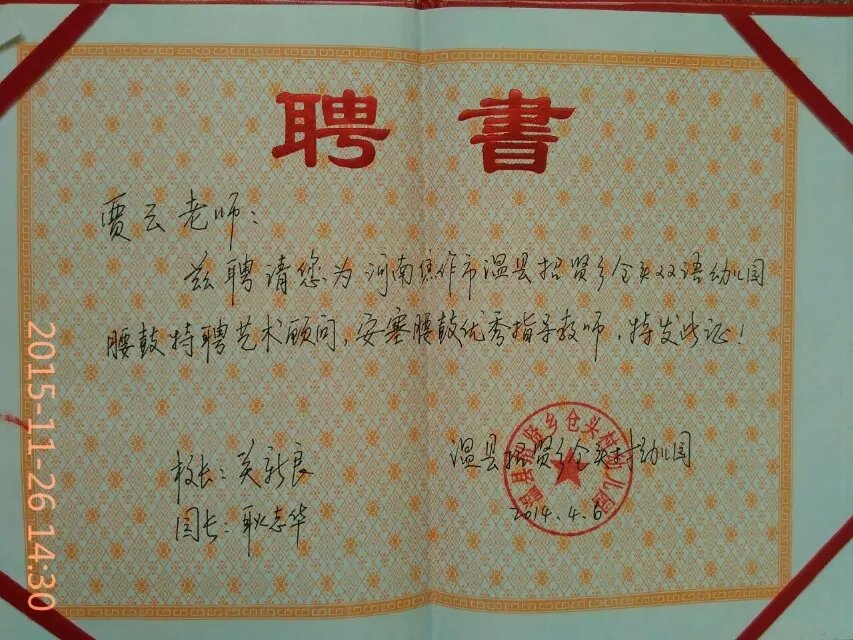 聘书
贾云老师：
兹聘请您为河南焦作市温县招贤乡仓头双语幼儿园
腰鼓特聘艺术顾问，安塞腰鼓优秀指导教师，特发此证！
校长：关新良
园长：耿志华
温县招贤乡仓头村幼儿园
2014.4.6
温县招贤乡仓头村幼儿园
2015-11-26 14:30